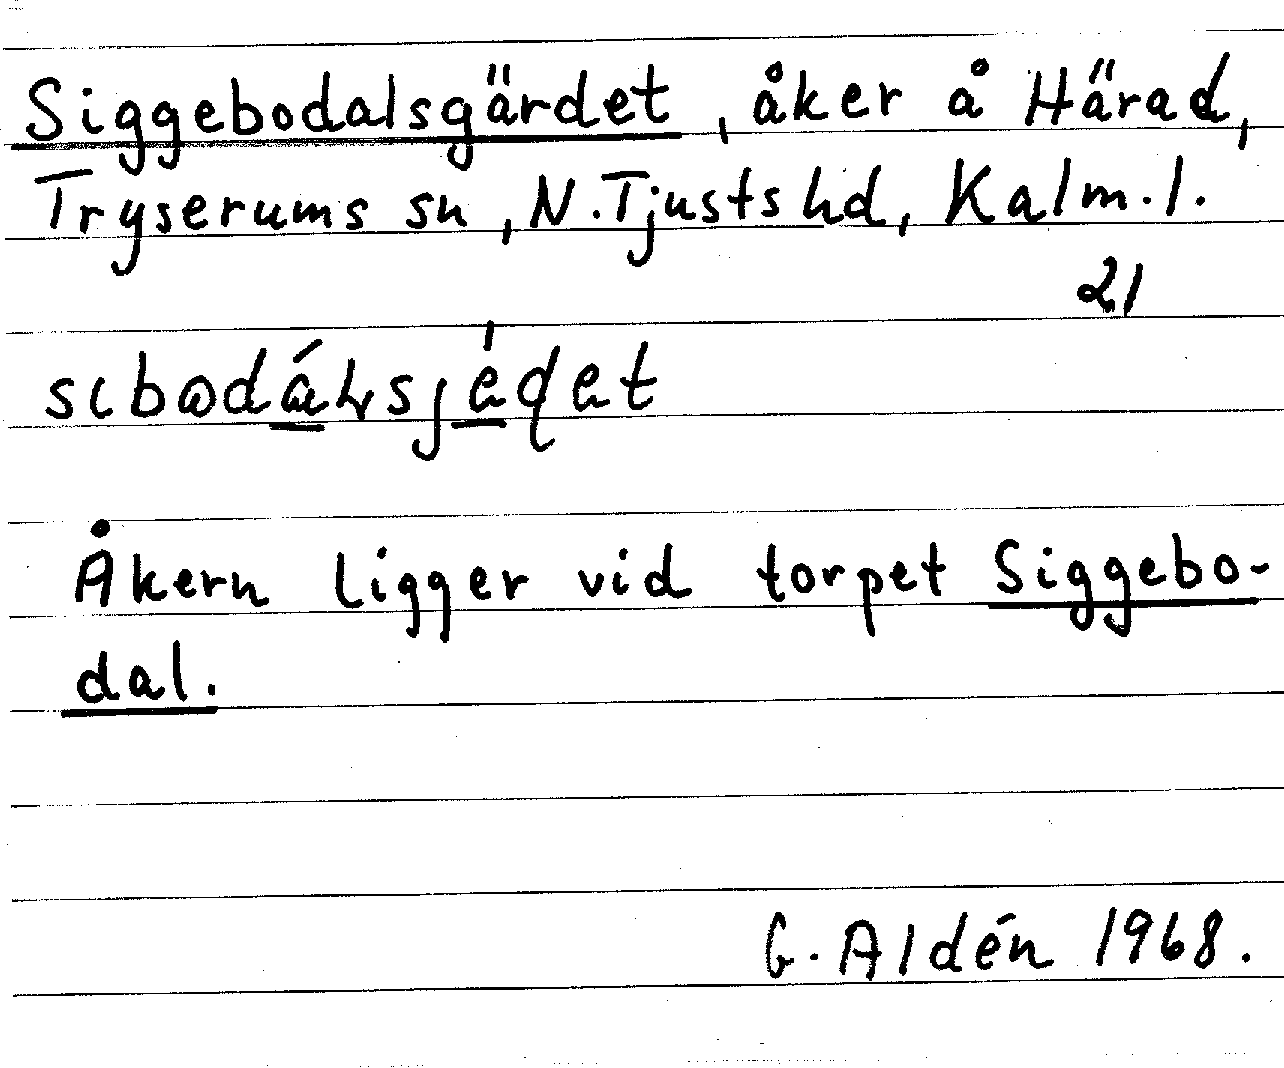 Siggebodalsgärdet, åker å Härad,
Tryserums sn, N. Tjusts hd, Kalm. l.
21
Åkern ligger vid torpet Siggebo-
dal.
G. Aldén 1968.